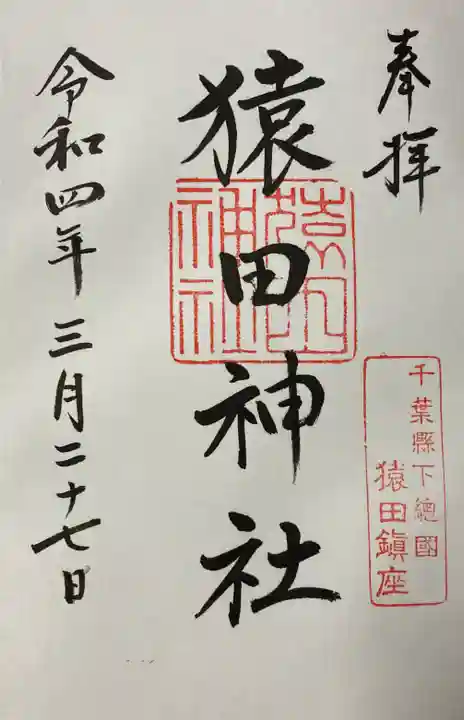 奉拝
千葉縣下總國
猿田鎭座
猿田神社
猿田
神社
令和四年三月二十七日